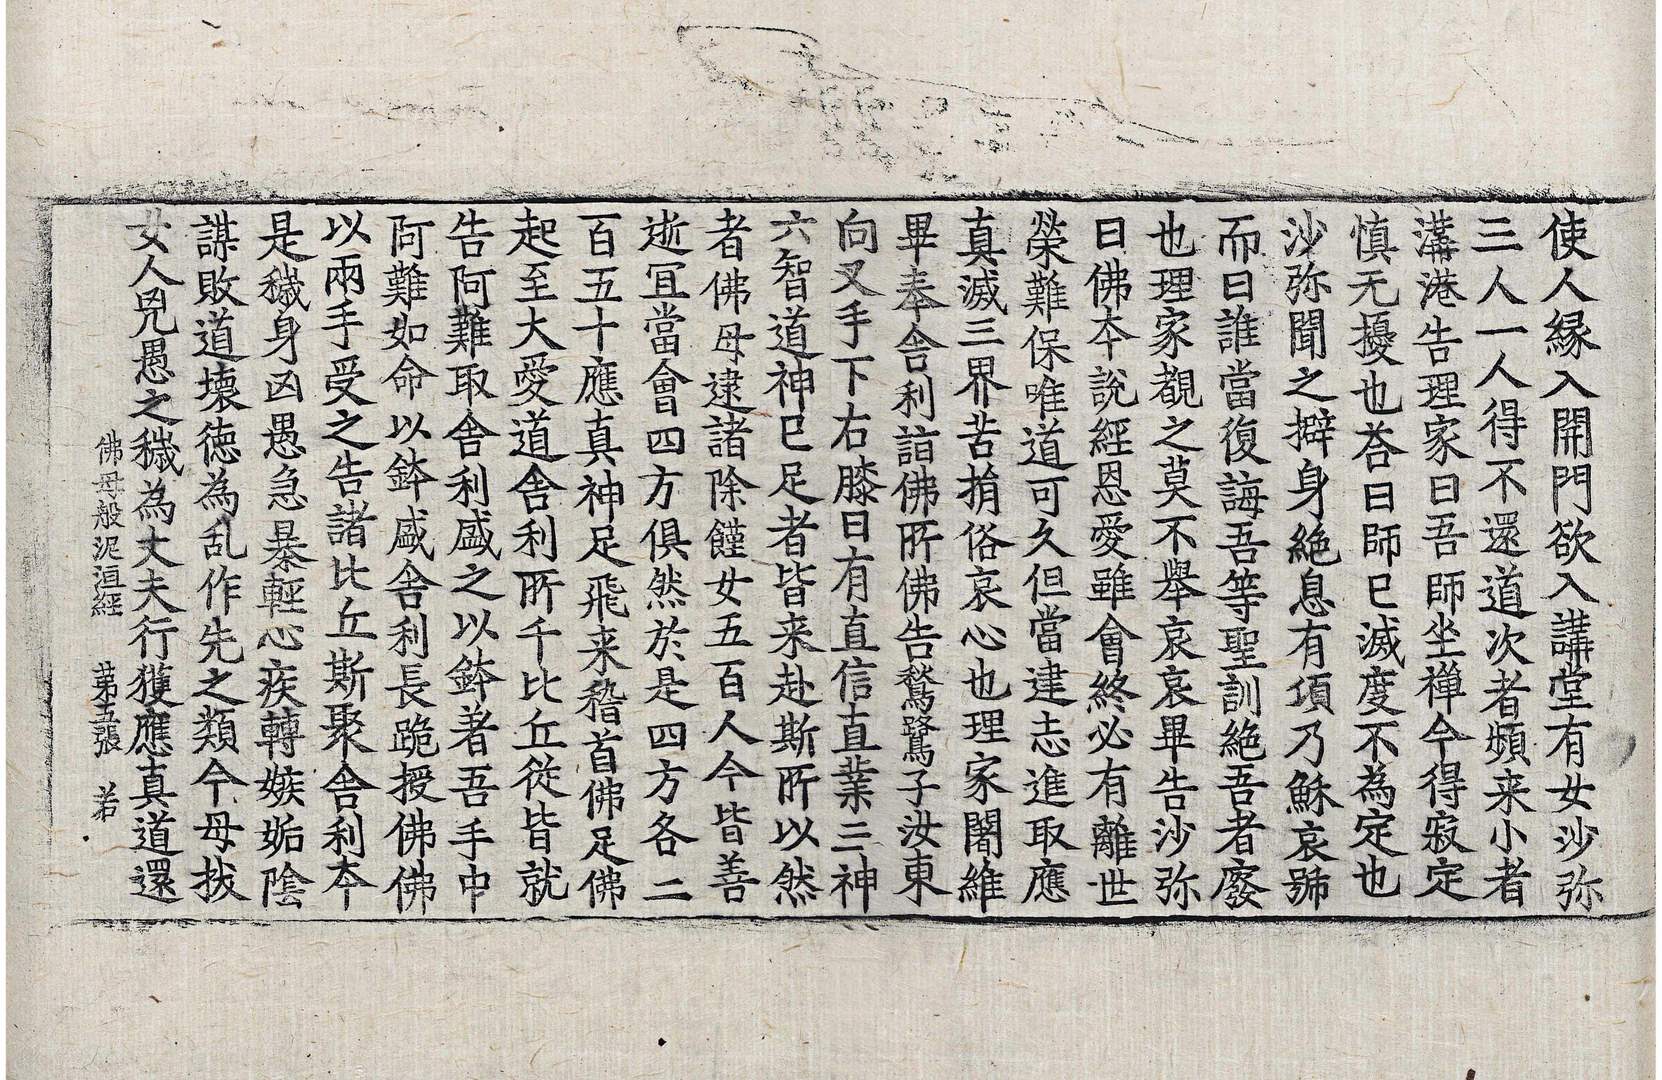 使人緣入開門欲入講堂有女沙弥
三人一人得不還道次者頻来小者
溝港告理家曰吾師坐禅今得寂定
慎无擾也荅曰師已滅度不為定也
沙弥聞之擗身絶息有項乃穌哀號
而曰誰當復誨吾等聖訓絶吾者廢
也理家覩之莫不舉哀哀畢告沙弥
曰佛夲說經恩愛雖會終必有離世
榮難保唯道可久但當建志進取應
真滅三界苦捐俗哀心也理家闍維
畢奉舎利詣佛所佛告鶖鷺子汝東
向叉手下右膝曰有直信直業三神
六智道神已足者皆来赴斯所以然
者佛母逮諸除饉女五百人今皆善
逝冝當會四方俱然於是四方各二
百五十應真神足飛来稽首佛足佛
起至大愛道舎利所千比丘從皆就
告阿難取舎利盛之以鉢著吾手中
阿難如命以鉢盛舎利長跪授佛佛
以兩手受之告諸比丘斯聚舎利夲
是穢身凶愚急暴輕心疾轉嫉妬陰
謀敗道壊徳為乱作先之類今母拔
女人兇愚之穢為丈夫行獲應真道還
佛母般泥洹經 苐五張 若